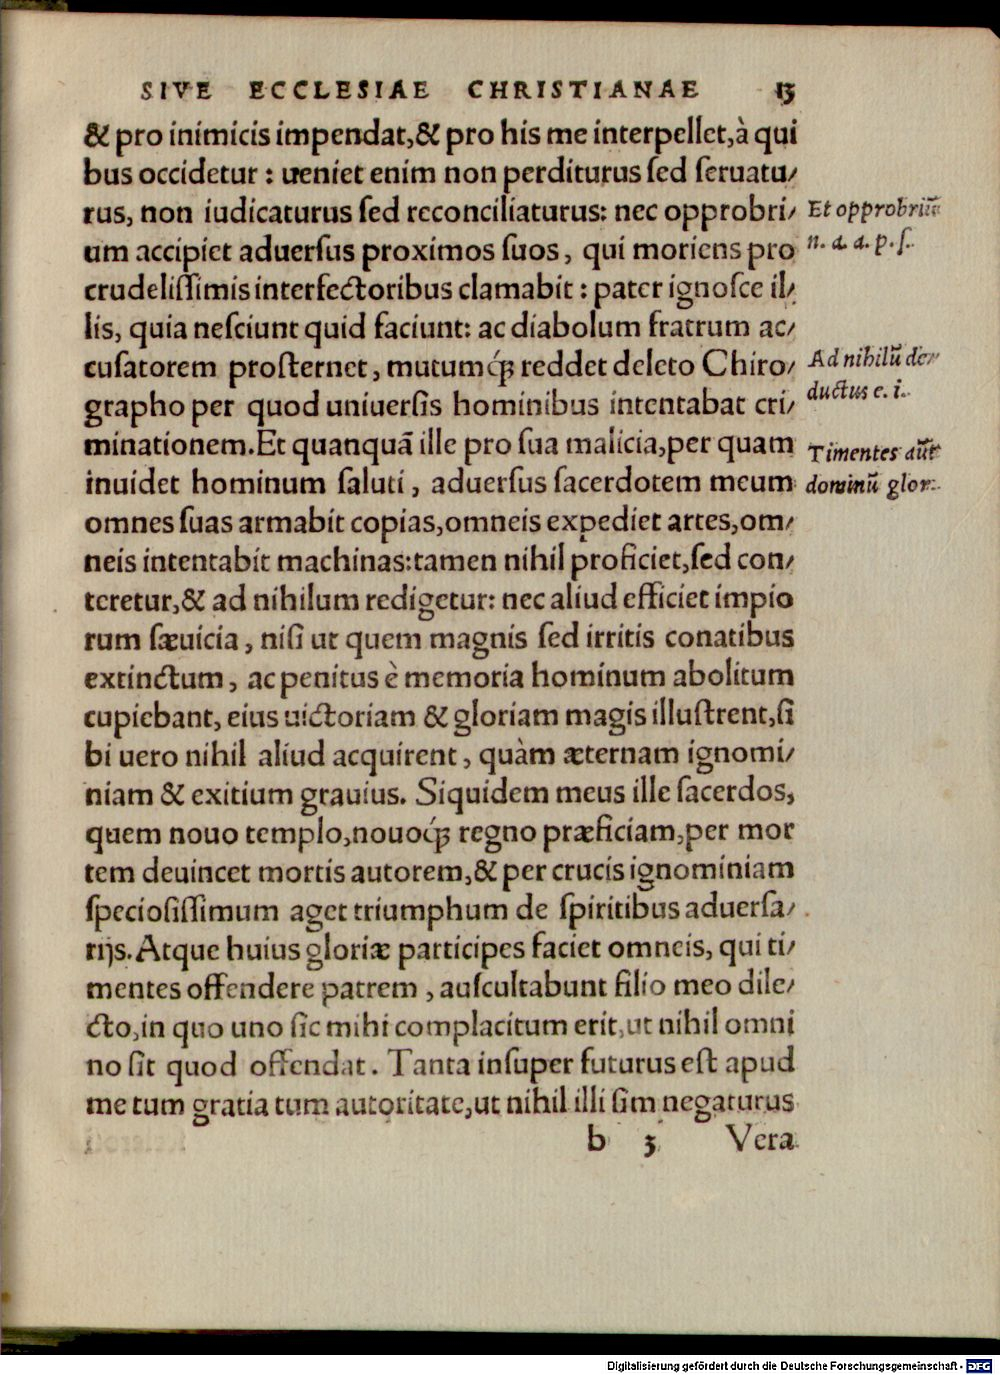 SIVE ECCLESIAE CHRISTIANAE 13
& pro inimicis impendat,& pro his me interpellet,à qui
bus occidetur : ueniet enim non perditurus ſed ſeruatu/
rus, non iudicaturus ſed reconciliaturus: nec opprobri/
um accipiet aduerſus proximos ſuos, qui moriens pro
crudeliſſimis interfectoribus clamabit : pater ignoſce il/
lis, quia neſciunt quid faciunt: ac diabolum fratrum ac/
cuſatorem proſternet, mutumq́ꝫ reddet deleto Chiro/
grapho per quod uniuerſis hominibus intentabat cri/
minationem. Et quanquā ille pro ſua malicia,per quam
inuidet hominum ſaluti, aduerſus ſacerdotem meum
omnes ſuas armabit copias,omneis expediet artes,om/
neis intentabit machinas:tamen nihil proficiet,ſed con/
teretur,& ad nihilum redigetur: nec aliud efficiet impio
rum ſæuicia, niſi ut quem magnis ſed irritis conatibus
extinctum, ac penitus è memoria hominum abolitum
cupiebant, eius uictoriam & gloriam magis illuſtrent,ſi
bi uero nihil aliud acquirent, quàm æternam ignomi/
niam & exitium grauius. Siquidem meus ille ſacerdos,
quem nouo templo,nouoq́ꝫ regno præficiam,per mor
tem deuincet mortis autorem,& per crucis ignominiam
ſpecioſiſſimum aget triumphum de ſpiritibus aduerſa/
rijs. Atque huius gloriæ participes faciet omneis, qui ti/
mentes offendere patrem, auſcultabunt filio meo dile/
cto,in quo uno ſic mihi complacitum erit,ut nihil omni
no ſit quod offendat. Tanta inſuper futurus eſt apud
me tum gratia tum autoritate,ut nihil illi ſim negaturus
b 3 Vera
Et opprobriū
n. a. a. p. ſ.
Ad nihilū de/
ductus e. i.
Timentes aūt
dominū glor.
Digitalisierung gefördert durch die Deutsche Forschungsgemeinschaft - DFG